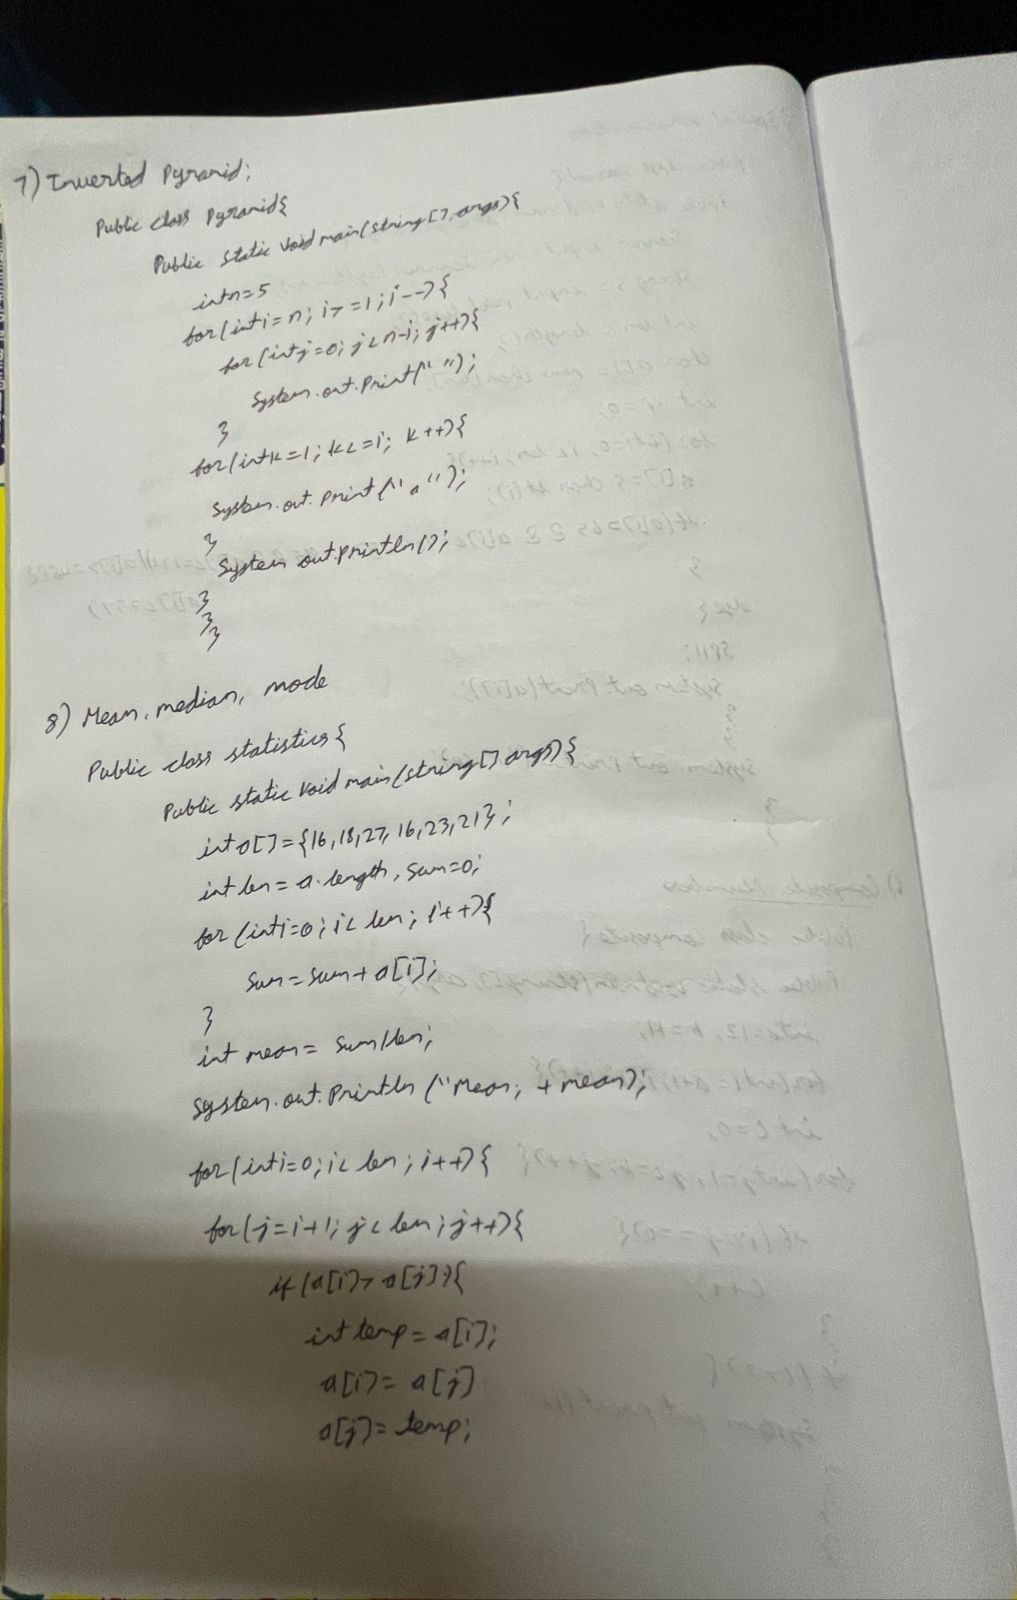 7) Inverted Pyramid;
Public class Pyramid{
Public static void main(string[], args){
int n=5
for(int i=n; i>=1; i--){
for(int j=0; j<n-i; j++){
System.out.Print(" ");
}
for(int k=1; k<=i; k++){
System.out.Print("a");
}
System out.println();
}
}
}
8) Mean, median, mode
Public class statistics{
Public static void main(string[] args){
int a[]={16,18,27,16,23,21};
int len=a.length, sum=0;
for(int i=0; i< len; i++){
sum=sum+a[i];
}
int mean= sum/len;
System.out.Println("Mean; +mean);
for(int i=0; i< len; i++){
for(j=i+1; j< len; j++){
if(a[i]> a[j]){
int temp=a[i];
a[i]= a[j]
a[j]= temp;